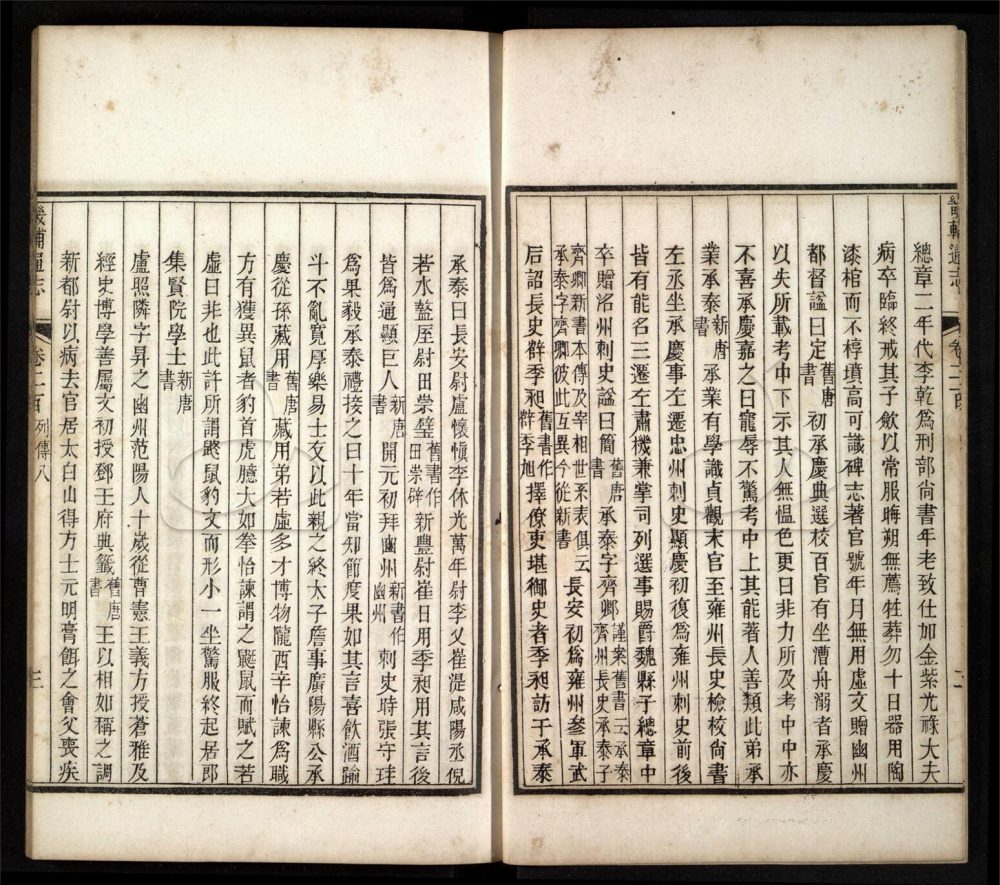 畿輔通志
卷二百
二
總章二年代李乾爲刑部尚書年老致仕加金紫光祿大夫
病卒臨終戒其子斂以常服晦朔無薦牲葬勿十日器用陶
漆棺而不槨墳高可識碑志著官號年月無用虛文贈幽州
都督謚曰定舊唐書初承慶典選校百官有坐漕舟溺者承慶
以失所載考中下示其人無慍色更曰非力所及考中中亦
不喜承慶嘉之曰寵辱不驚考中上其能著人善類此弟承
業承泰新唐書承業有學識貞觀末官至雍州長史檢校尚書
左丞坐承慶事左遷忠州刺史顯慶初復爲雍州刺史前後
皆有能名三遷左肅機兼掌司列選事賜爵魏縣子總章中
卒贈洺州刺史謚曰簡舊唐書承泰字齊卿謹案舊書云承泰齊州長史承泰子
齊卿新書本傳及宰相世系表俱云承泰字齊卿彼此互異今從新書長安初爲雍州參軍武
后詔長史薛季昶舊書作薛季旭擇僚吏堪御史者季昶訪于承泰
承泰曰長安尉盧懷愼李休光萬年尉李乂崔湜咸陽丞倪
若水盩厔尉田崇璧舊書作田崇辟新豐尉崔日用季昶用其言後
皆爲通顯巨人新唐書開元初拜幽州新書作豳州刺史時張守珪
爲果毅承泰禮接之曰十年當知節度果如其言喜飲酒踰
斗不亂寬厚樂易士友以此親之終太子詹事廣陽縣公承
慶從孫藏用舊唐書藏用弟若虛多才博物隴西辛怡諫爲職
方有獲異鼠者豹首虎臆大如拳怡諫謂之鼮鼠而賦之若
虛曰非也此許所謂鼨鼠豹文而形小一坐驚服終起居郎
集賢院學士新唐書
盧照隣字昇之幽州范陽人十歲從曹憲王義方授蒼雅及
經史博學善屬文初授鄧王府典籤舊唐書王以相如稱之調
新都尉以病去官居太白山得方士元明膏餌之會父喪疾
畿輔通志
卷二百
列傳八
三